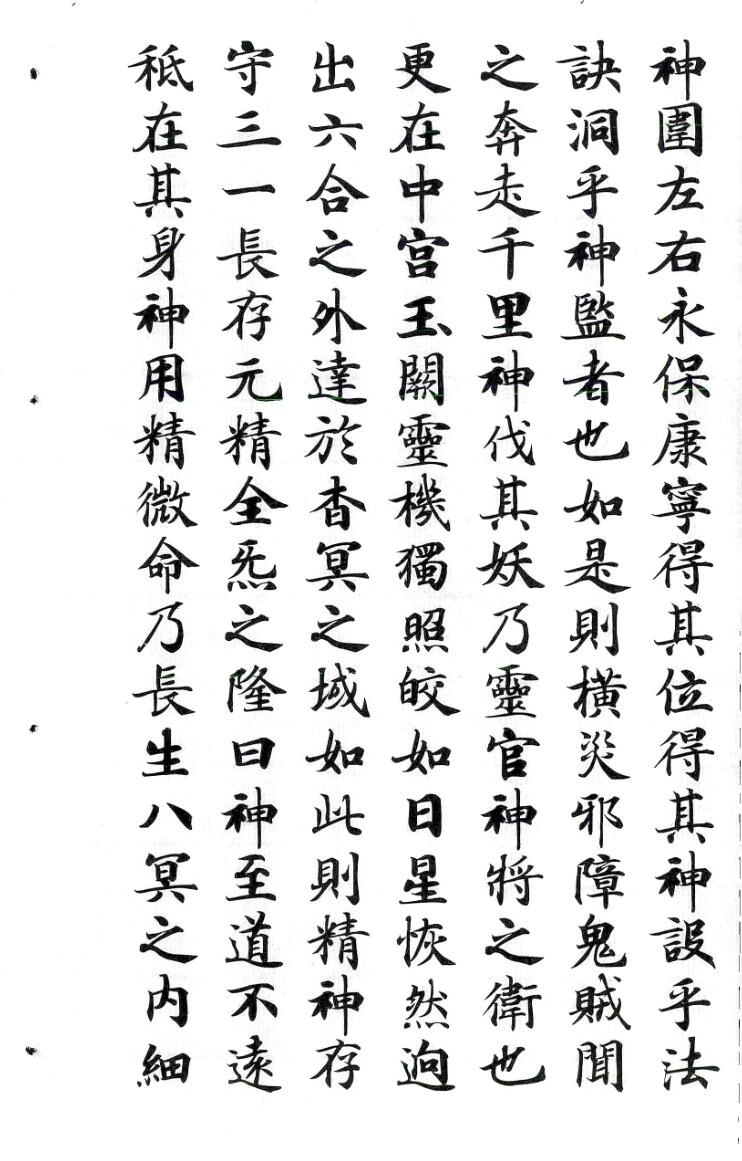 神圍左右永保康寧得其位得其神設乎法
訣洞乎神監者也如是則橫災邪障鬼賊聞
之奔走千里神伐其妖乃靈官神將之衛也
更在中宮玉闕靈機獨照皎如日星恢然迥
出六合之外達於杳冥之域如此則精神存
守三一長存元精全炁之隆曰神至道不遠
秪在其身神用精微命乃長生八冥之內細